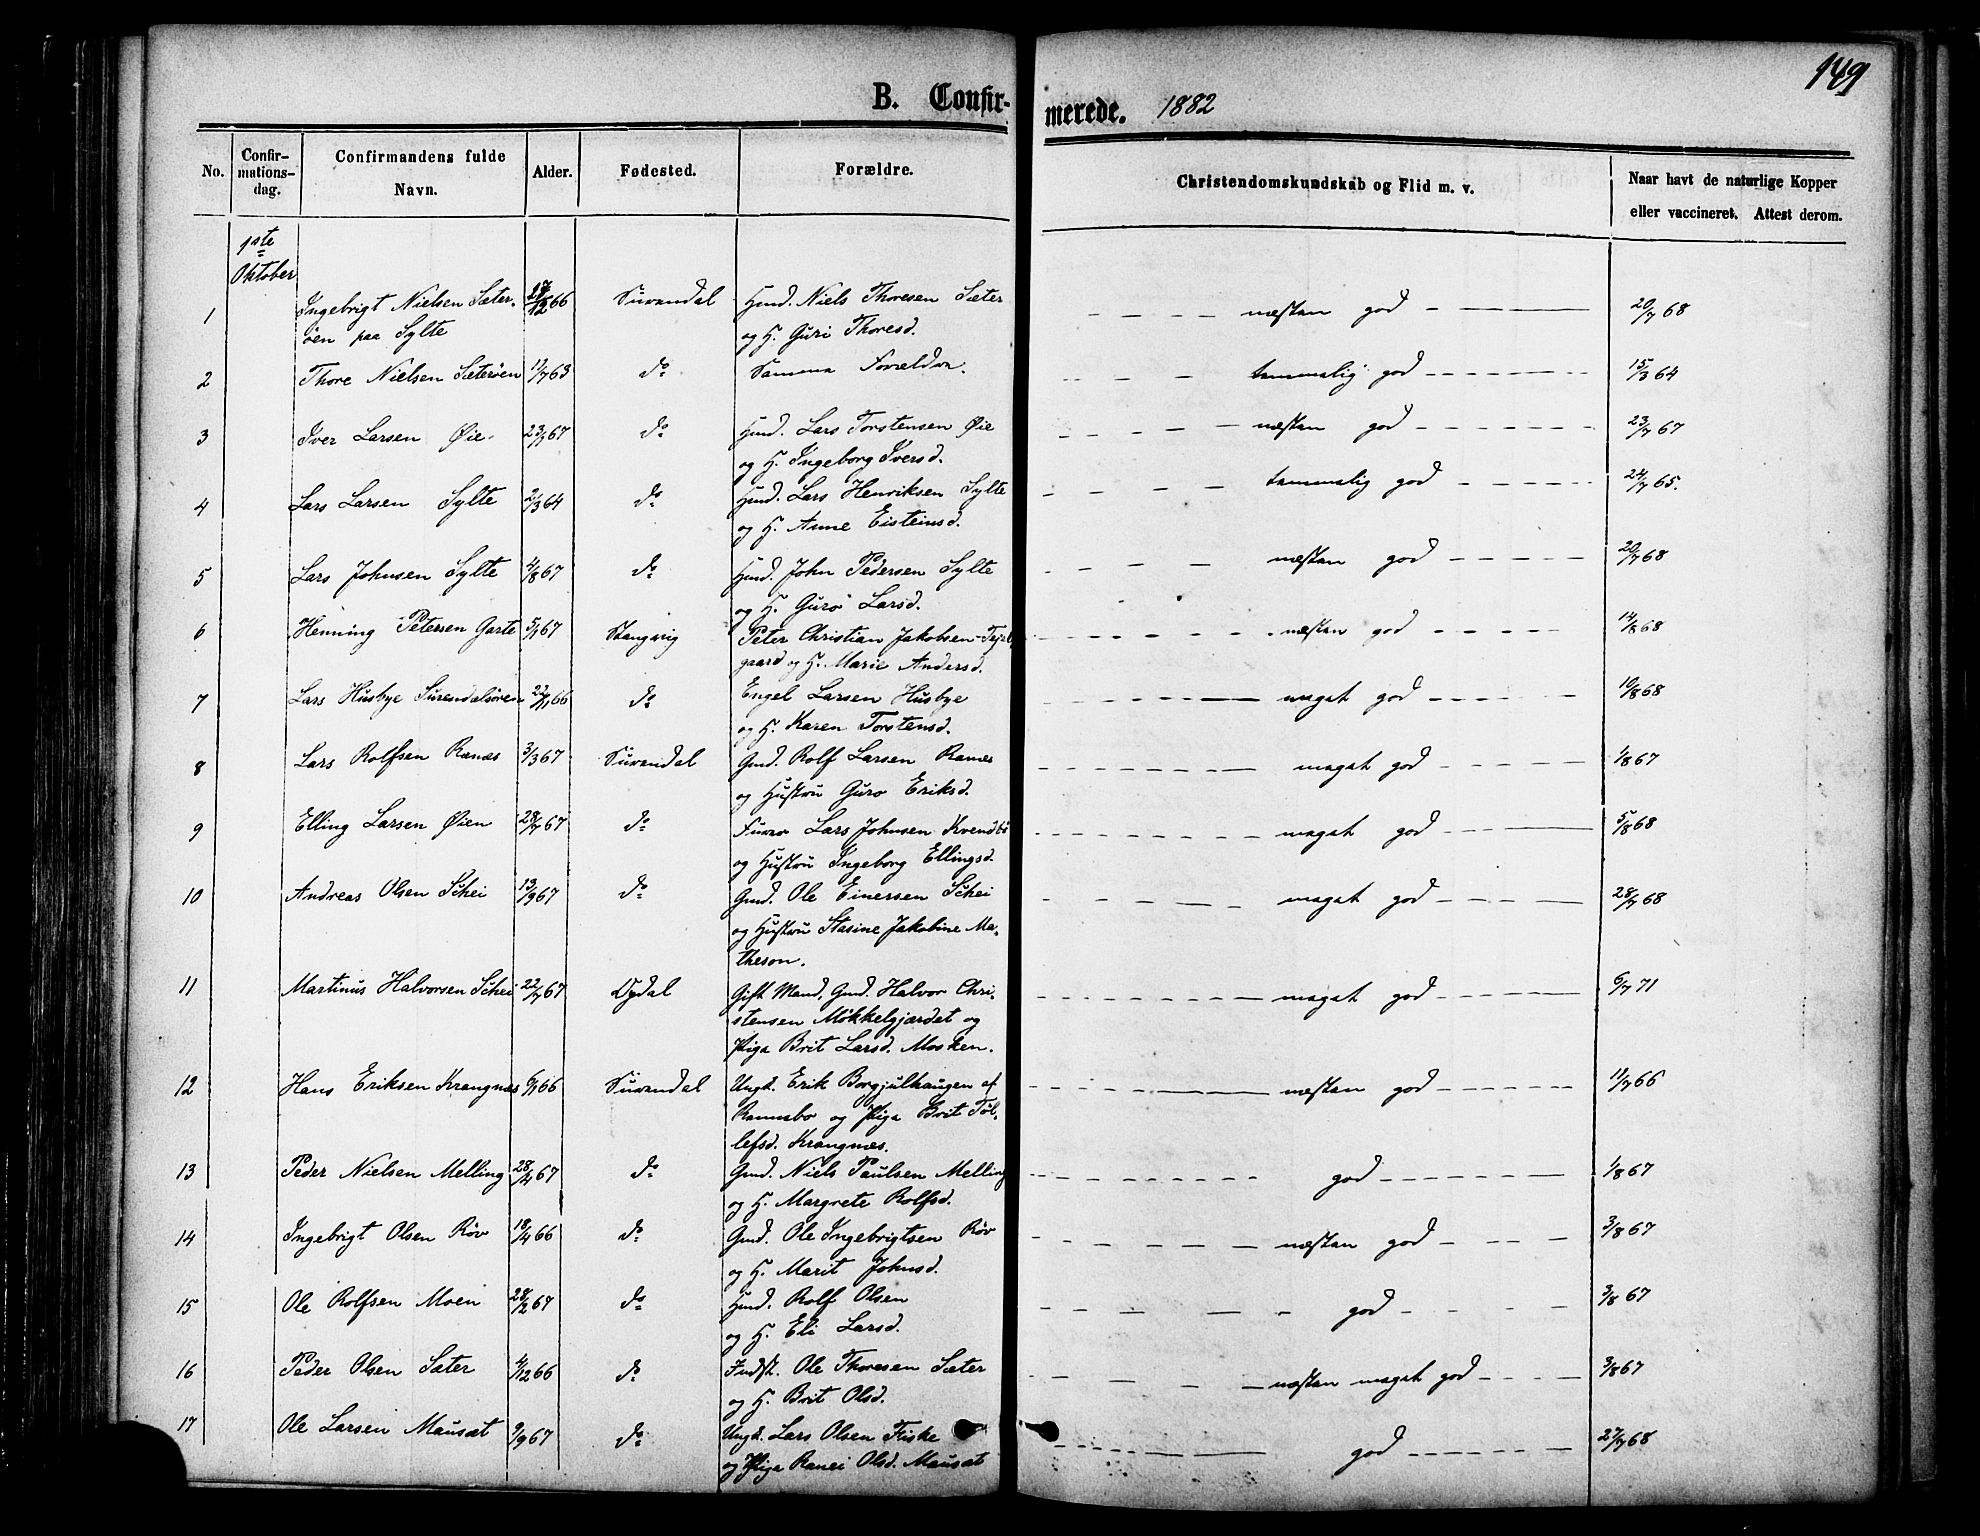 149
B. Confirmerede. 1882
No. Confirmationsdag. Confirmandens fulde Navn. Alder. Fødested. Forældre. Christendomskundskab og Flid m. v. Naar havt de naturlige Kopper eller vaccineret. Attest derom.
1ste
Oktober
1 Ingebrigt Nielsen Sæter- /12 66 Surendal Hmd. Niels Thoresen Sæter næsten god 20/7 68
øen paa Sylte og H. Guri Thoresd.
2 Thore Nielsen Sæterøen 12/7 63 do Samme Forældre. temmelig god 15/3 64
3 Iver Larsen Øie do Hmd. Lars Torstensen Øie næsten god 23/7 67
og H. Ingeborg Iversd.
4 Lars Larsen Sylte 2/3 64 do Hmd. Lars Henriksen Sylte temmelig god 24/7 65.
og H. Anne Eisteinsd.
5 Lars Johnsen Sylte 4/8 67 do Hmd. John Pedersen Sylte næsten god 20/7 68
og H. Guro Larsd.
6 Henning Petersen Garte 5/1 67 Stangvig Peter Christian Jakobsen næsten god 14/8 68
gaard og H. Marie Andersd.
7 Lars Husbye Surendalsøren 22/1 66 do Engel Larsen Husbye meget god 10/8 68
og H. Karen Torstensd.
8 Lars Rolfsen Ranæs 3/3 67 Surendal Gmd. Rolf Larsen Ranæs meget god 1/8 67
og Hustru Guro Eriksd.
9 Elling Larsen Øien 28/7 67 do Lars Johnsen Kvendbø meget god 5/8 68
og Hustru Ingeborg Ellingsd.
10 Andreas Olsen Schei 13/9 67 do Gmd. Ole Einersen Schei meget god 28/7 68
og Hustru Stasine Jakobine Ma-
theson.
11 Martinus Halvorsen Schei 22/7 67 Opdal Gift Mand, Gmd. Halvor Chri- meget god 6/7 71
stensen Møkkelgjærdet og
Pige Brit Larsd. Mosken.
12 Hans Eriksen Krangnæs 6/1 66 Surendal Ungk. Erik Borgjulhaugen af næsten god 11/7 66
Rannebo og Pige Brit Tøl-
lefsd. Krangnæs.
13 Peder Nielsen Melling 28/4 67 do Gmd. Niels Paulsen Melling god 1/8 67
og H. Margrete Rolfsd.
14 Ingebrigt Olsen Røv 18/4 66 do Gmd. Ole Ingebrigtsen Røv næsten god 3/8 67
og H. Marit Johnsd.
15 Ole Rolfsen Moen 28/2 67 do Hmd. Rolf Olsen god 3/8 67
og H. Eli Larsd.
16 Peder Olsen Sæter /12 66 do Indst. Ole Thoresen Sæter næsten meget god 3/8 67
og H. Brit Olsd.
17 Ole Larsen Mausæt 9/9 67 do Ungk. Lars Olsen Fiske god 27/7 68
og Pige Ranei Olsd. Mausæt